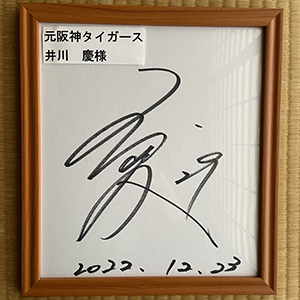 元阪神タイガース
井川　慶様
29
2022. 12. 23